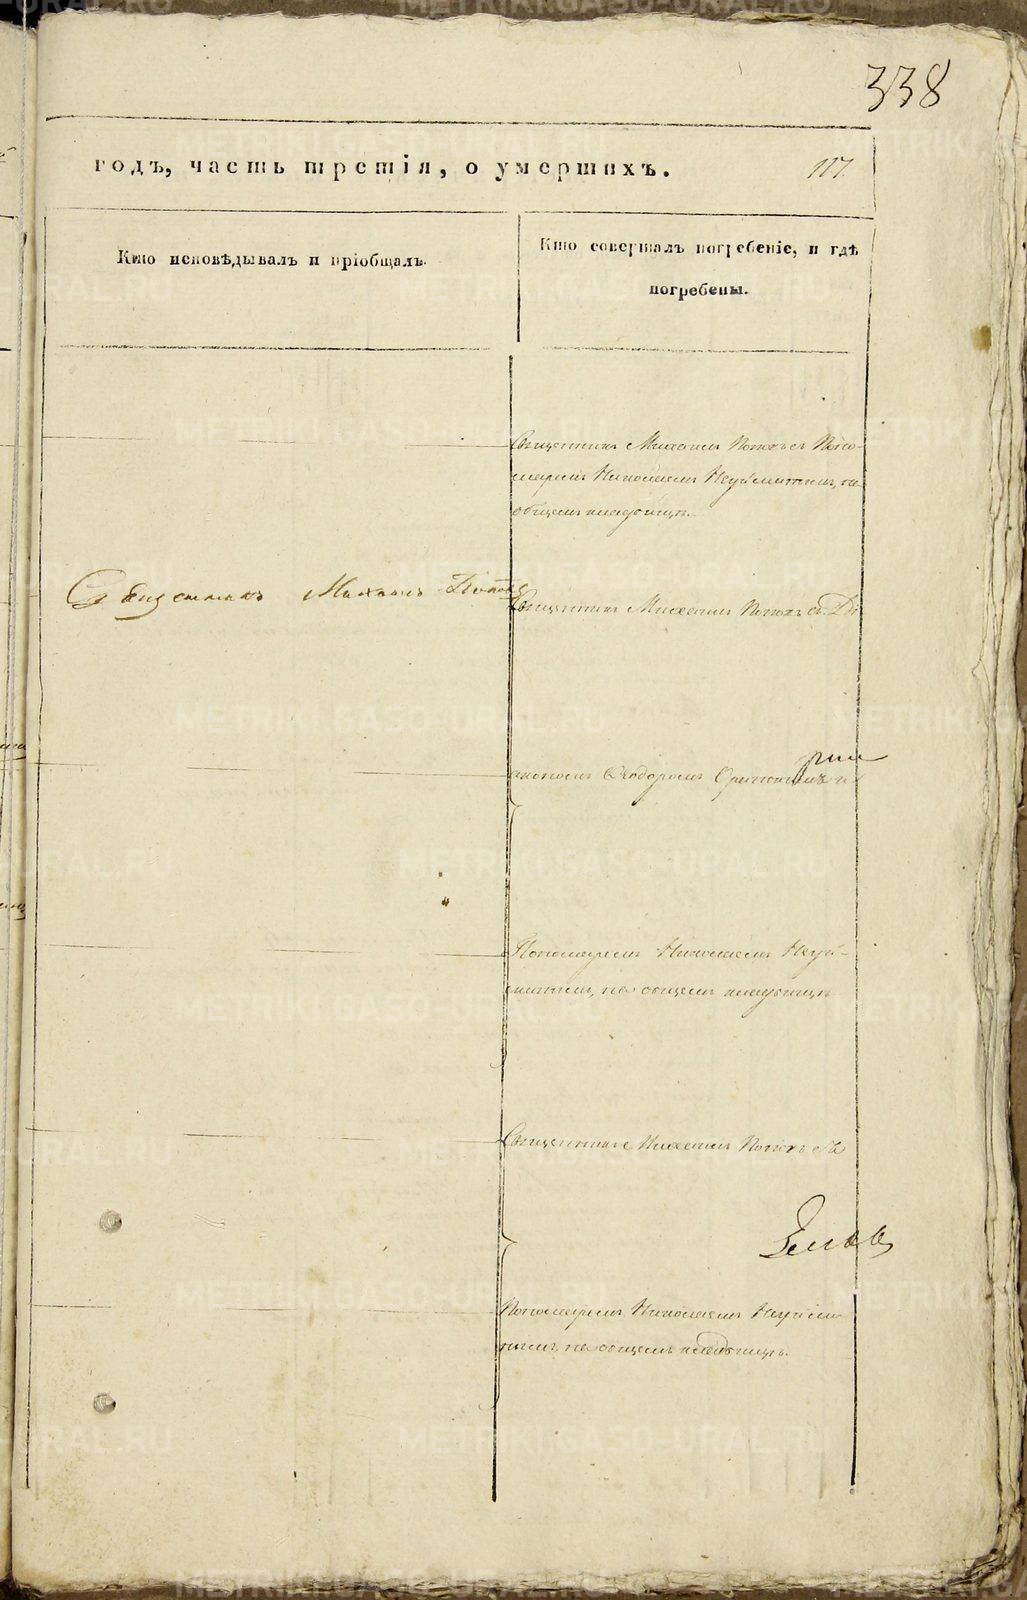 338
годъ, часть третія, о умершихъ.
117.
Кто исповѣдывалъ и пріобщалъ.
Кто совершалъ погребеніе, и гдѣ
погребены.
Священникъ Михаилъ Поповъ съ Поно-
маремъ Николаемъ на
общемъ кладбищѣ.
Священникъ Михаилъ Поповъ
Священникъ Михаилъ Поповъ съ Ді
акономъ Ѳеодоромъ и
Пономаремъ Николаемъ
на общемъ кладбищѣ
Священникъ Михаилъ Поповъ съ
Пономаремъ Николаемъ
на общемъ кладбищѣ.
METRIKI.GASO-URAL.RU